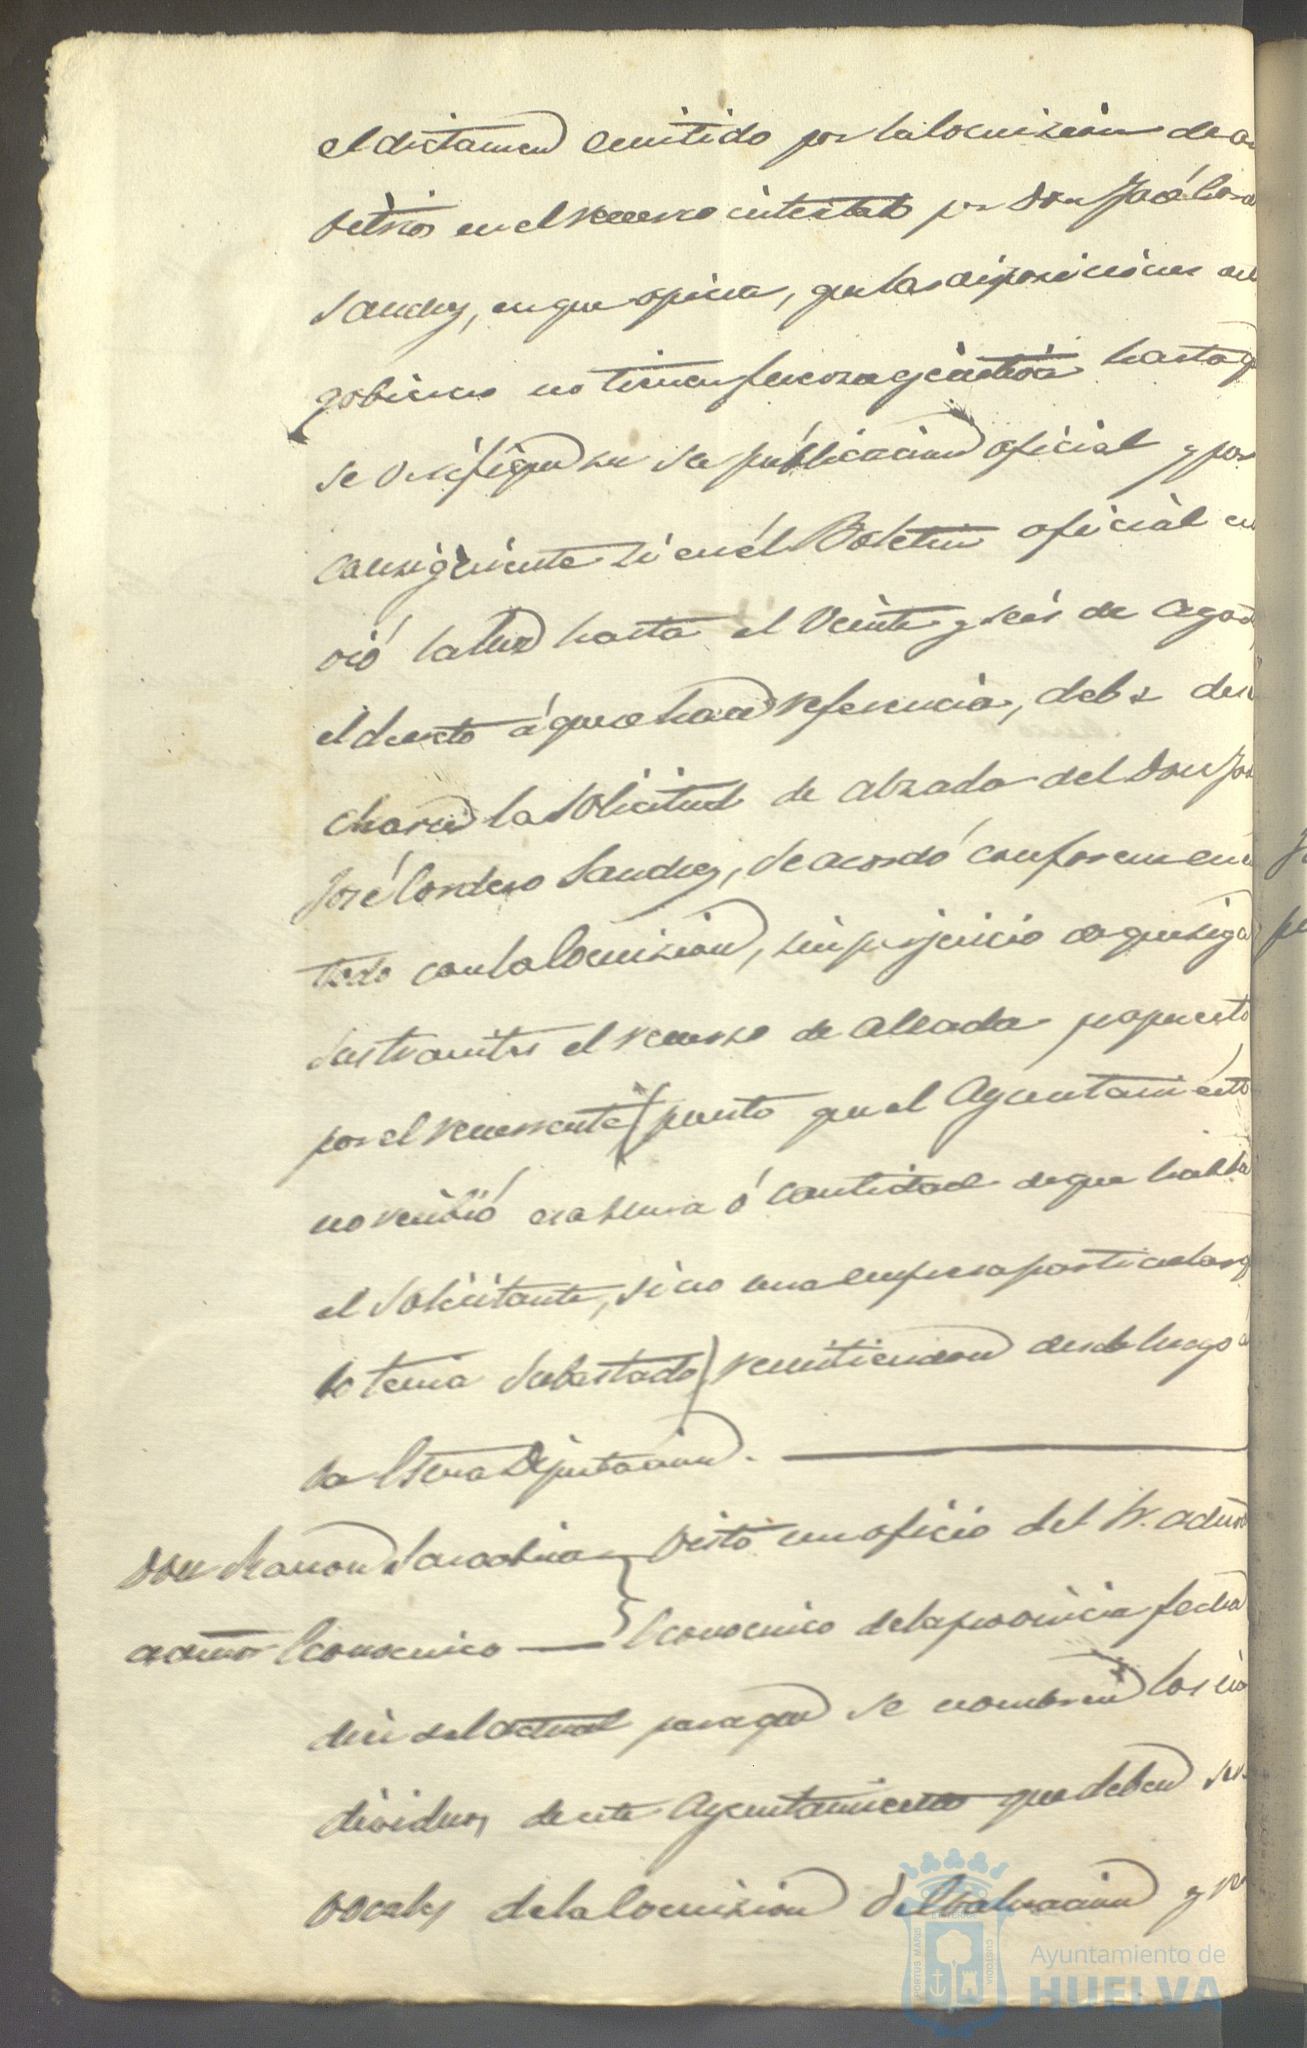 el dictamen emitido por la Comision de ar
bitrios en el recurso intentado por Don José Cord
Sanchez, en que opina, que las disposiciones del
gobierno no tienen fuerza ejecutiva hasta q
se verifique su publicacion oficial y por
consiguiente si en el Boletin oficial no
vió la luz hasta el veinte y seis de Agost
el decreto á que se hace referencia, debe dese
charse la solicitud de alzada del Don Jos
José Cordero Sanchez, se acordó conforme en u
todo con la Comision, sin perjuicio de que siga
sus tramites el recurso de alzada propuesto
por el recurrente (puesto que el Ayuntamiento
no recibió esa suma ó cantidad de que habla
el solicitante, sino una empresa particular q
lo tenia subastado) remitiendose desde luego á
la Escma Diputacion.
Don Ramon
admor Economico
Visto un oficio del Sr. admor
Economico de la provincia fecha
diez del actual para que se nombren los in
dividuos de este Ayuntamiento que deben ser
vocales de la Comision de Evaluacion y r
Ayuntamiento de
HUELVA
PORTUS MARIS
CUSTODIA